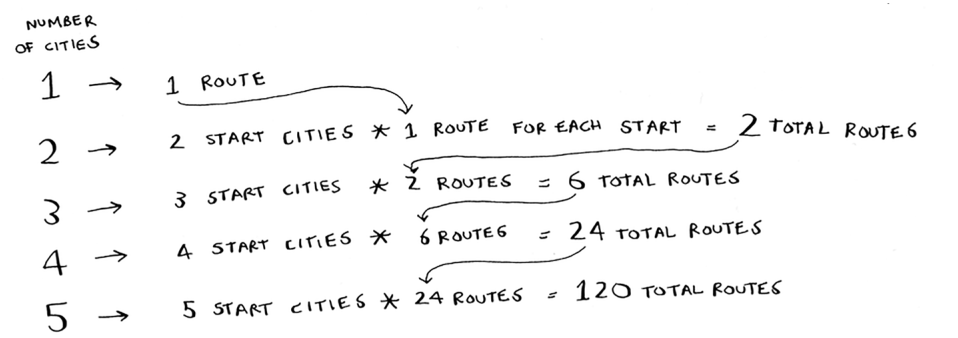 NUMBER
OF CITIES
1 → 1 ROUTE
2 → 2 START CITIES * 1 ROUTE FOR EACH START = 2 TOTAL ROUTES
3 → 3 START CITIES * 2 ROUTES = 6 TOTAL ROUTES
4 → 4 START CITIES * 6 ROUTES = 24 TOTAL ROUTES
5 → 5 START CITIES * 24 ROUTES = 120 TOTAL ROUTES